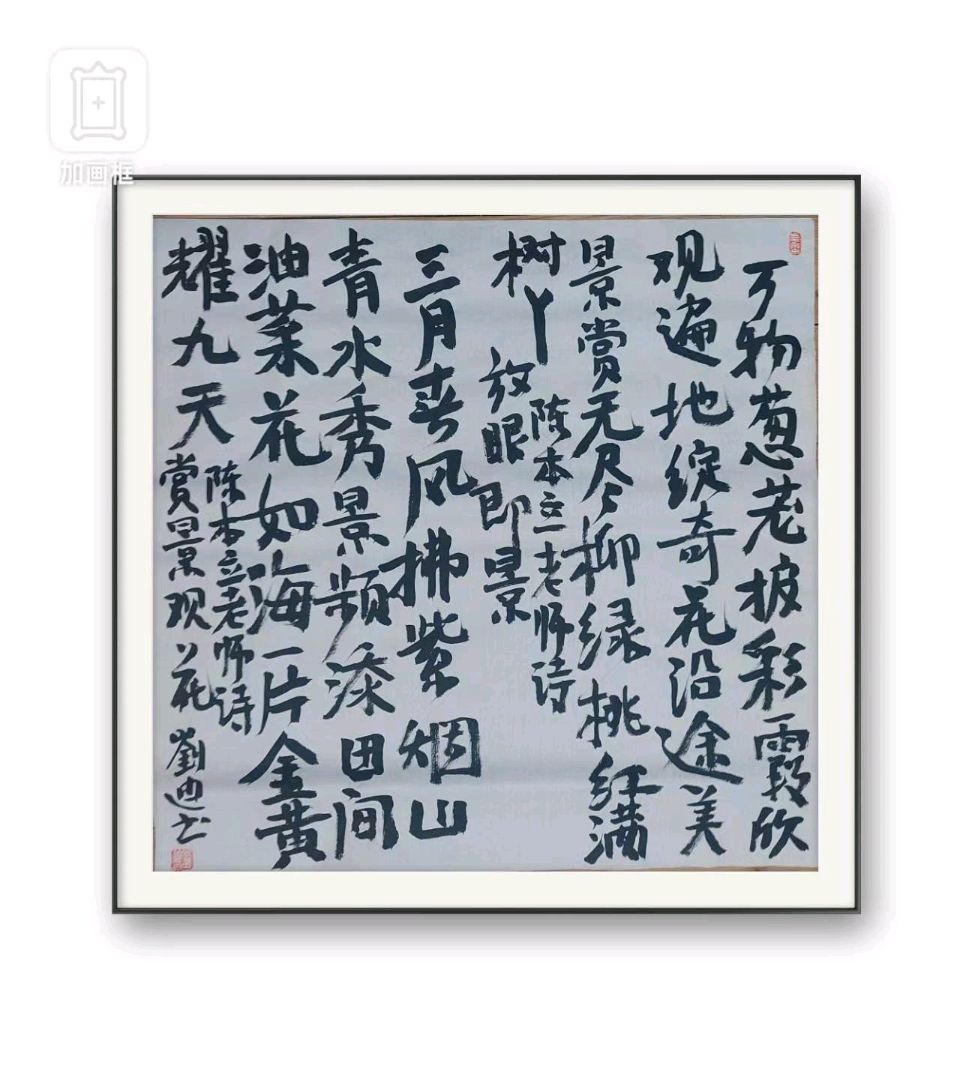 加画框
万物葱茏披彩霞欣
观遍地绽奇花沿途美
景赏无尽柳绿桃红满
树丫
陈本立老师诗
放眼即景
三月春风拂紫烟山
青水秀景频添田间
油菜花如海一片金黄
耀九天
陈本立老师诗
赏景观花 劉迪书